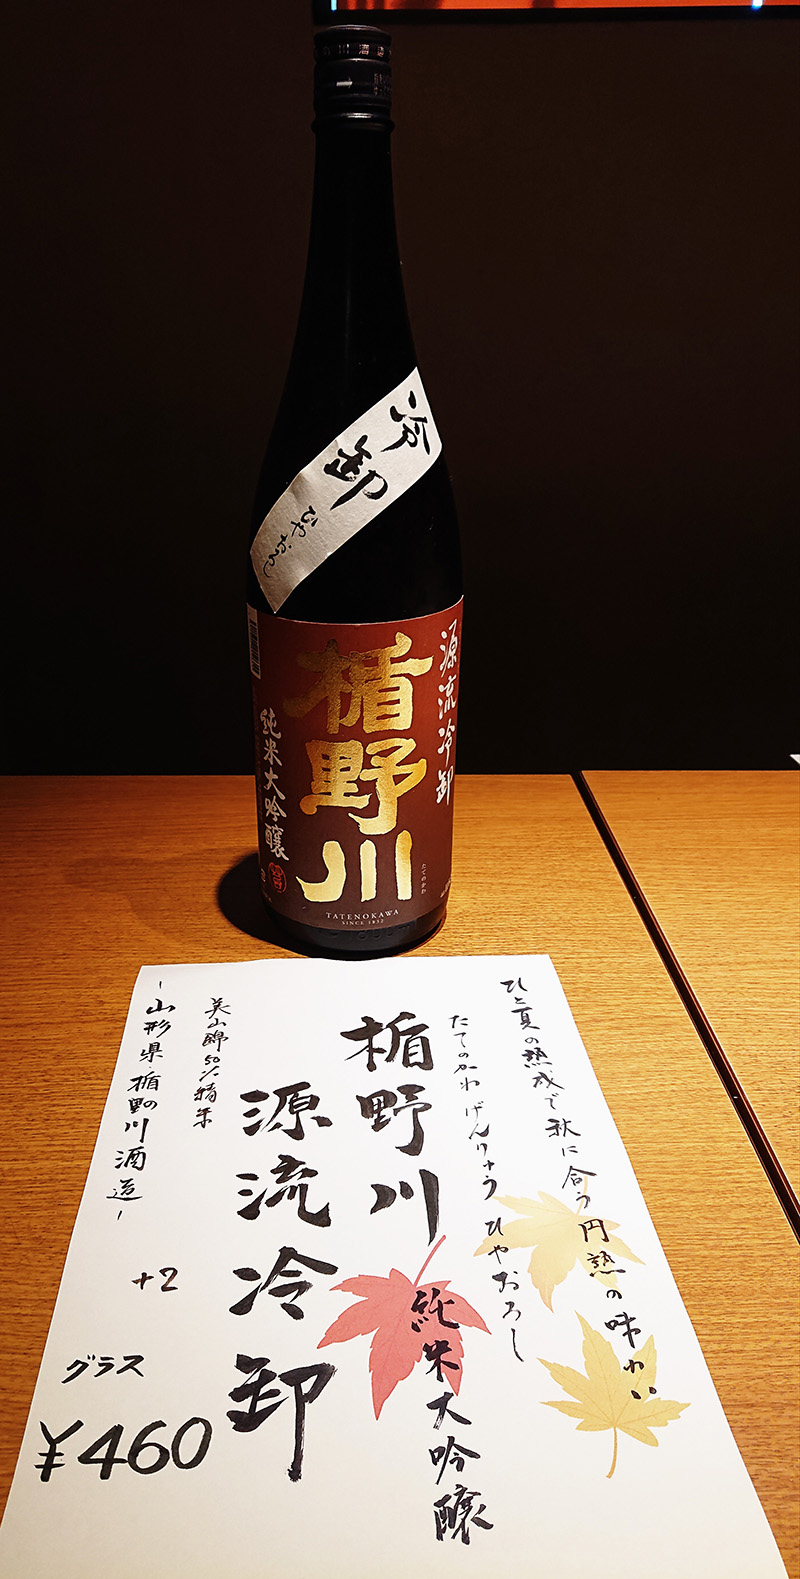 冷卸
ひやおろし
源流冷卸
楯野川
たてのかわ
純米大吟醸
TATENOKAWA
SINCE 1832
ひと夏の熟成で秋に合う円熟の味わい
たてのかわ げんりゅう ひやおろし
楯野川 純米大吟醸
源流冷卸
美山錦50%精米
~山形県・楯の川酒造~
+2
グラス
¥460